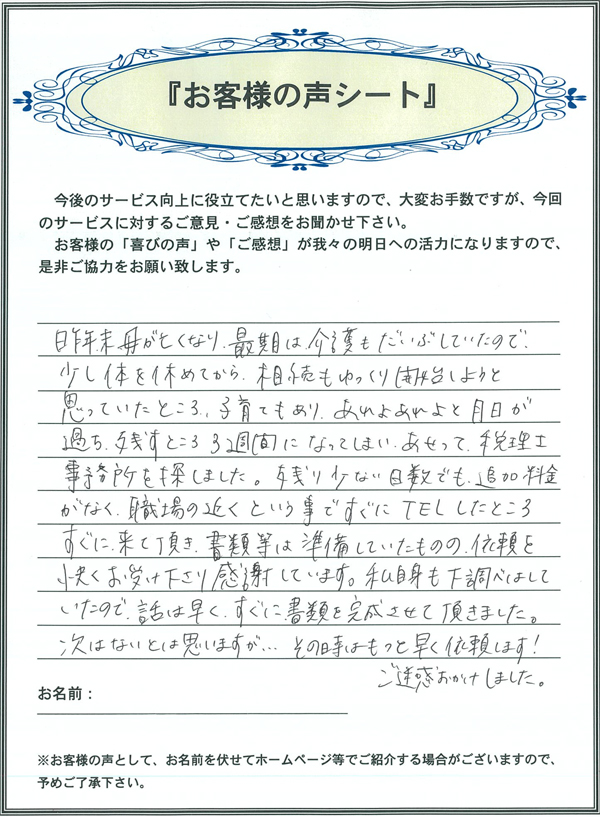 『お客様の声シート』
今後のサービス向上に役立てたいと思いますので、大変お手数ですが、今回
のサービスに対するご意見・ご感想をお聞かせ下さい。
お客様の「喜びの声」や「ご感想」が我々の明日への活力になりますので、
是非ご協力をお願い致します。
昨年末母が亡くなり、最期は、介護もだいぶしていたので、
少し体を休めてから、相続もゆっくり開始しようと
思っていたところ、子育てもあり、あれよあれよと月日が
過ち、残すところ3週間になってしまい、あせって、税理士
事務所を探しました。残り少ない日数でも、追加料金
がなく、職場の近くという事ですぐにTELしたところ
すぐに、来て頂き、書類等は準備していたものの、依頼を
快くお受け下さり感謝しています。私自身も下調べはして
いたので、話は早く、すぐに書類を完成させて頂きました。
次はないとは思いますが… その時はもっと早く依頼します!
ご迷惑おかけしました。
お名前:
※お客様の声として、お名前を伏せてホームページ等でご紹介する場合がございますので、
予めご了承下さい。